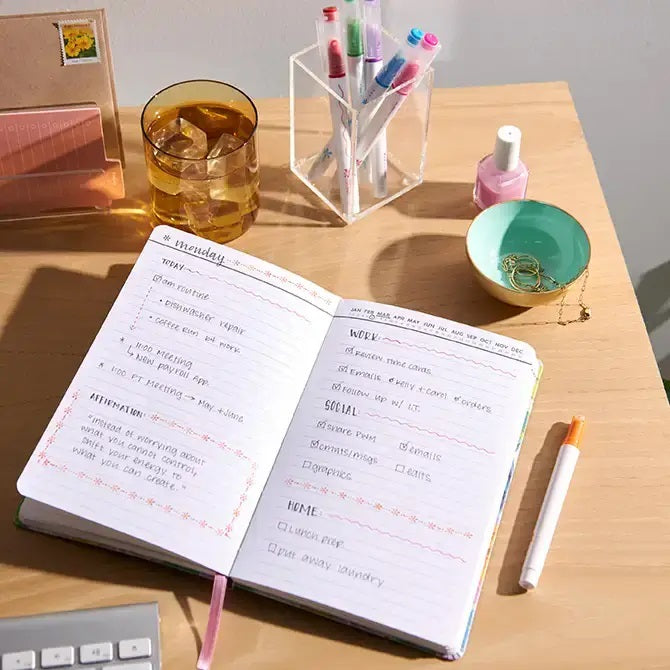 * monday
TODAY:
☑ am routine
• dishwasher repair
• coffee run b4 work
* 1100 Meeting
↳ New payroll App.
* 1:00 PT Meeting → May + June
AFFIRMATION:
"Instead of worrying about
what you cannot control,
shift your energy to
what you can create."
JAN FEB MAR APR MAY JUN JUL AUG SEP OCT NOV DEC
WORK:
☑ Review time cards
☑ Emails ☑ Kelly + Carol ☑ orders
☑ Follow up w/ I.T.
SOCIAL:
☑ share PWM ☑ emails
☑ cmnts/msgs ☐ edits
☐ graphics
HOME:
☐ Lunch prep
☐ put away laundry